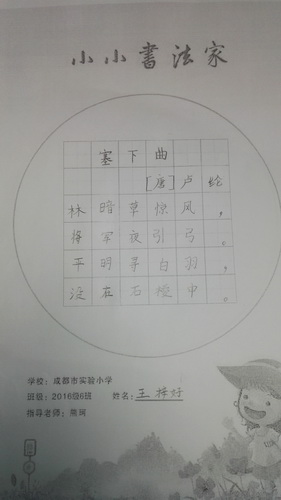 小小書法家
塞下曲
[唐]卢纶
林暗草惊风,
将军夜引弓。
平明寻白羽,
没在石棱中。
学校:成都市实验小学
班级:2016级6班 姓名:王梓好
指导老师:熊瑚